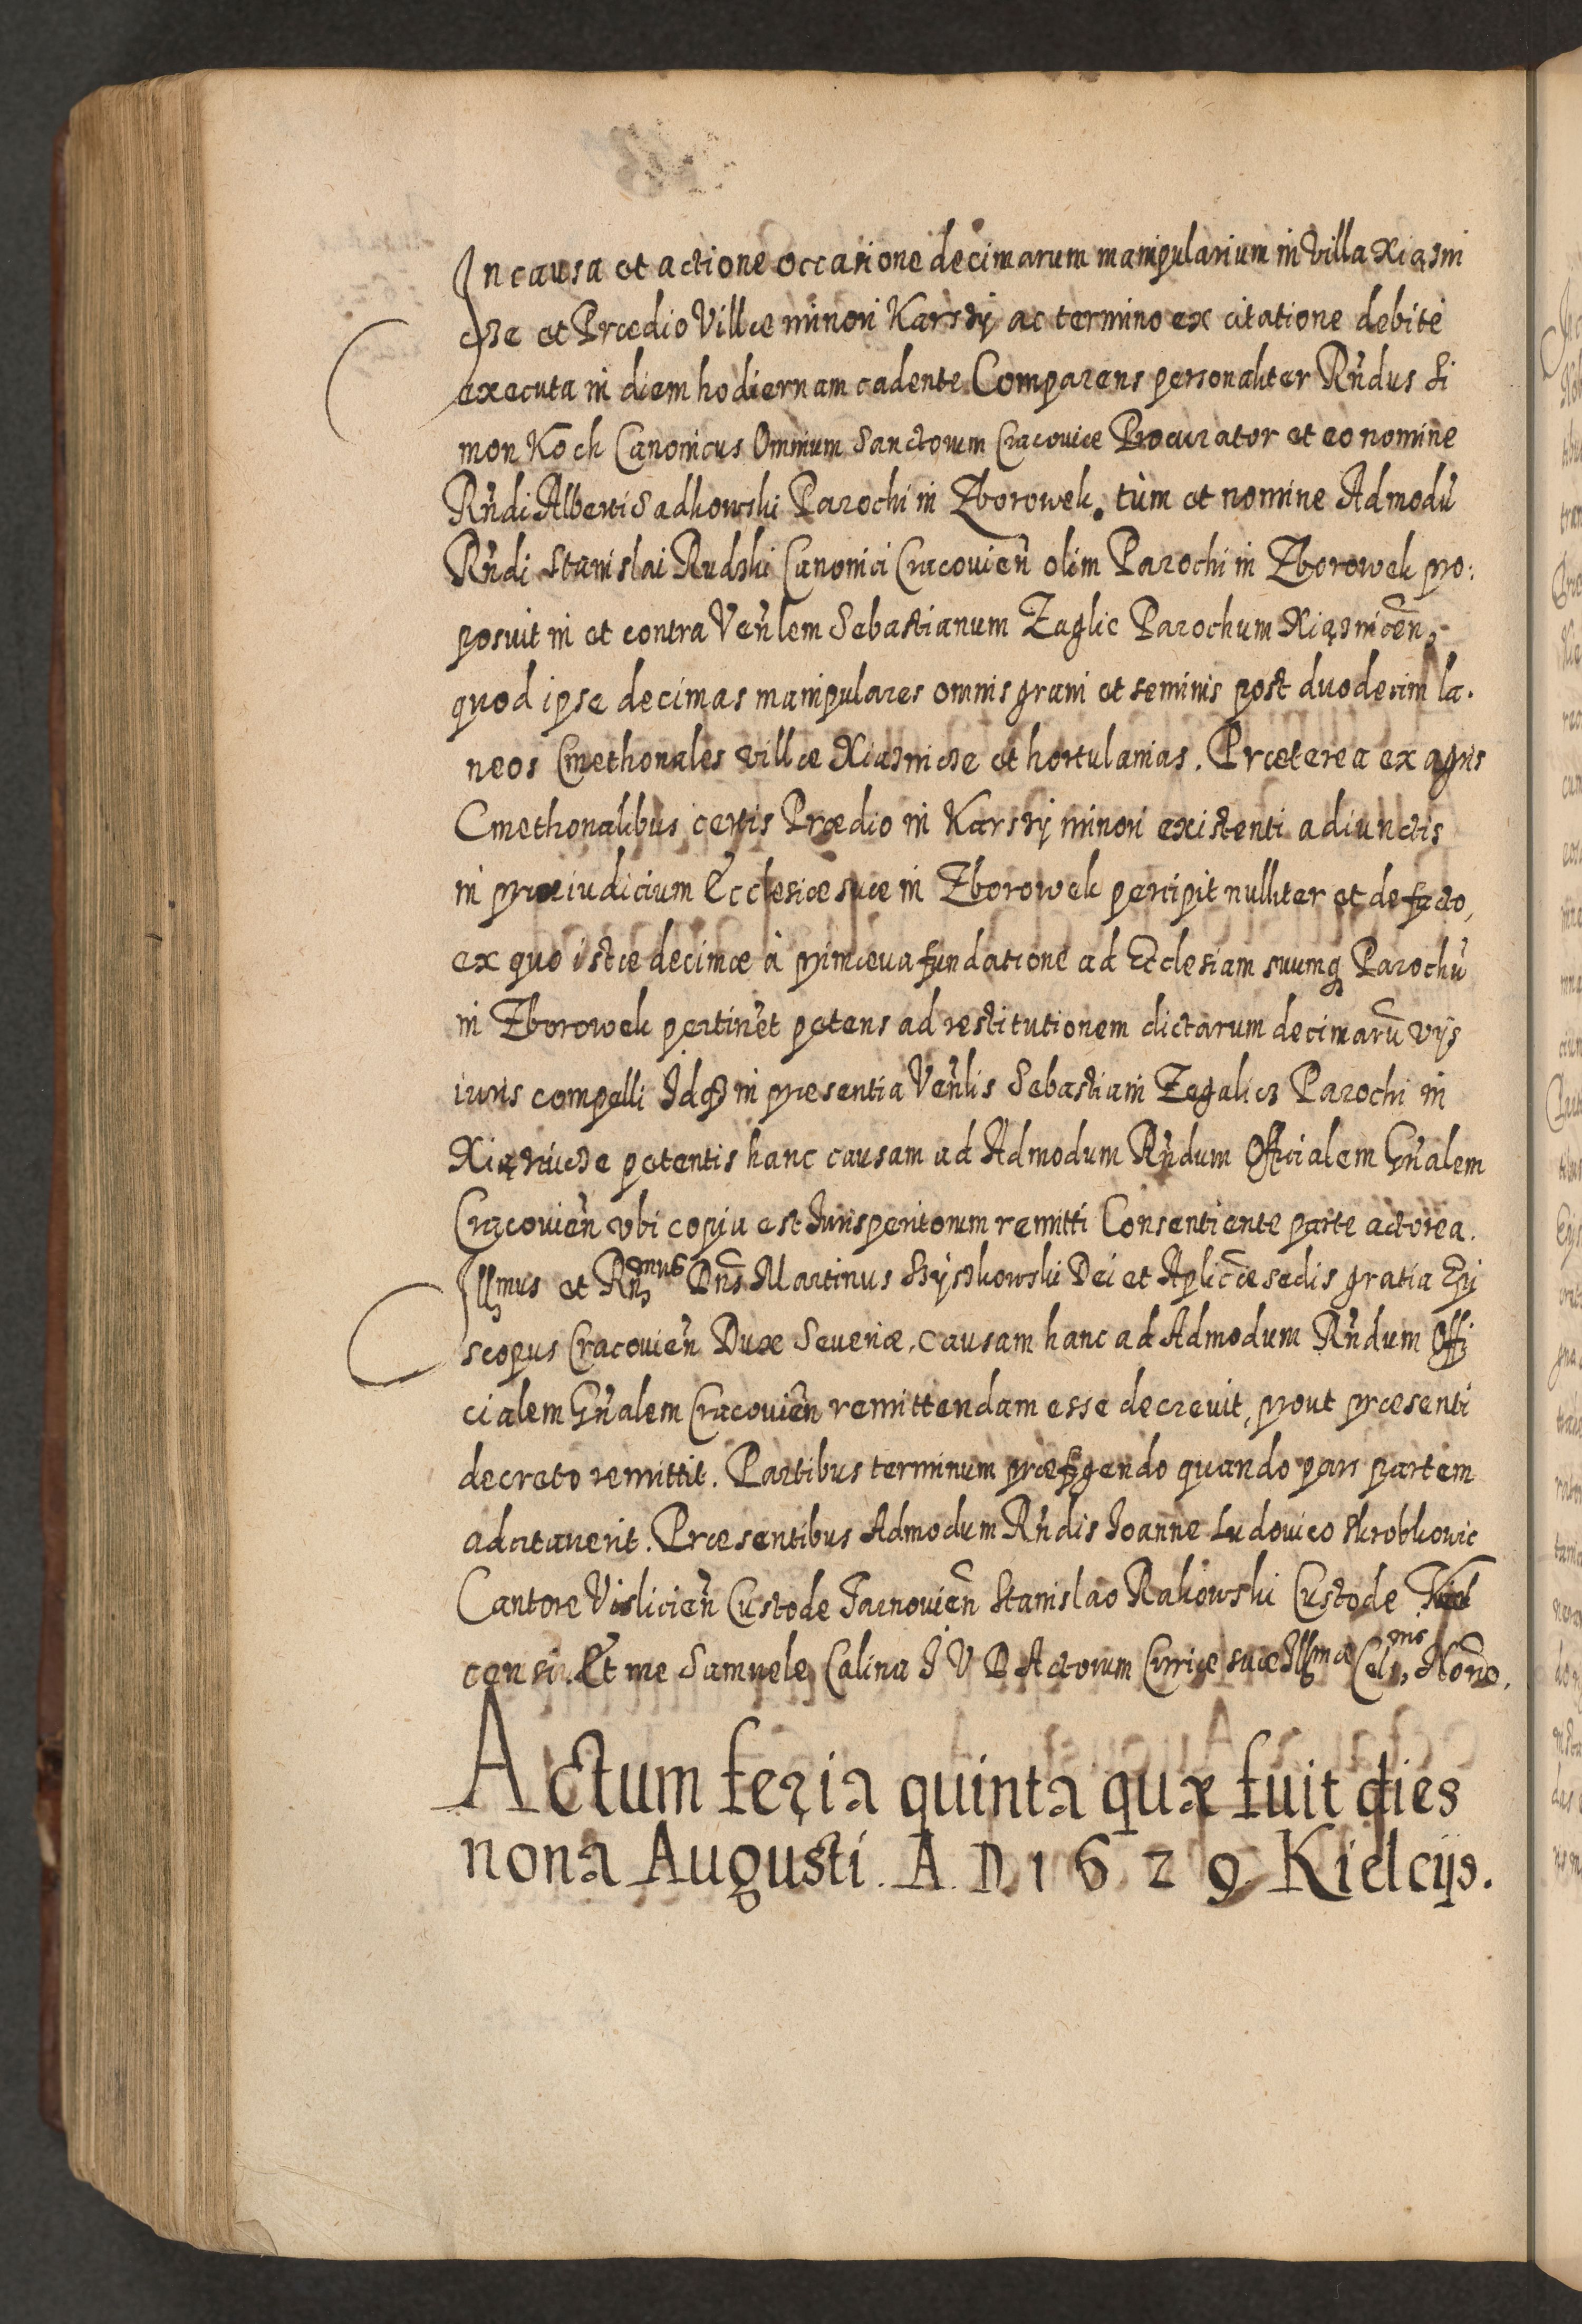 In causa et actione occasione decimarum manipularium in Villa Xiązni
cze et Prædio Villæ minori Karszÿ ac termino ex citatione debite
executa in diem hodiernam cadente Comparens personaliter Rñdus Si
mon Koch Canonicus Omnium Sanctorum Cracoviæ Procurator et eo nomine
Rñdi Alberti Sadkowski Parochi in Zborowek, tùm et nomine Admodũ
Rñdi Stanislai Rudzki Canonici Cracovieñ olim Parochi in Zborowek pro:
posuit in et contra Veñlem Sebastianum Zaglic Parochum Xiązniceñ,
quod ipse decimas manipulares omnis grani et seminis post duodecim la.
neos Cmethonales villæ Xiąznicze et hortulanias. Præterea ex agris
Cmethonalibus certis Prædio in Karszÿ minori existenti adiunctis
in præiudicium Ecclesiæ suæ in Zborowek percipit nulliter et de facto,
ex quo istæ decimæ à primæva fundatione ad Ecclesiam suumq Parochũ
in Zborowek pertinet petens ad restitutionem dictarum decimarũ vijs
iuris compelli Idq in præsentia Veñlis Sebastiani Zegalicz Parochi in
Xiąznicze petentis hanc causam ad Admodum Rñdum Officialem Gñalem
Cracovieñ vbi copia est Jurisperitorum remitti Consentiente parte actorea.
Illmus et Rñmus Dñs Martinus Szÿszkowski Dei et Aplicæ sedis gratia Epi
scopus Cracovieñ Dux Severiæ, causam hanc ad Admodum Rñdum Offi
cialem Gñalem Cracovieñ remittendam esse decrevit, prout præsenti
decreto remittit. Partibus terminum præfigendo quando pars partem
adcitaverit. Præsentibus Admodum Rñdis Joanne Ludovico Skrobkowic
Cantore Vislicieñ Custode Tarnovieñ Stanislao Rakowski Custode Kiel
censi. Et me Samuele Calina J V D Actorum Curiæ suæ Illmæ Celnis Noño.
Actum feria quinta quæ fuit dies
nona Augusti. A. D. 1629 Kielcijs.